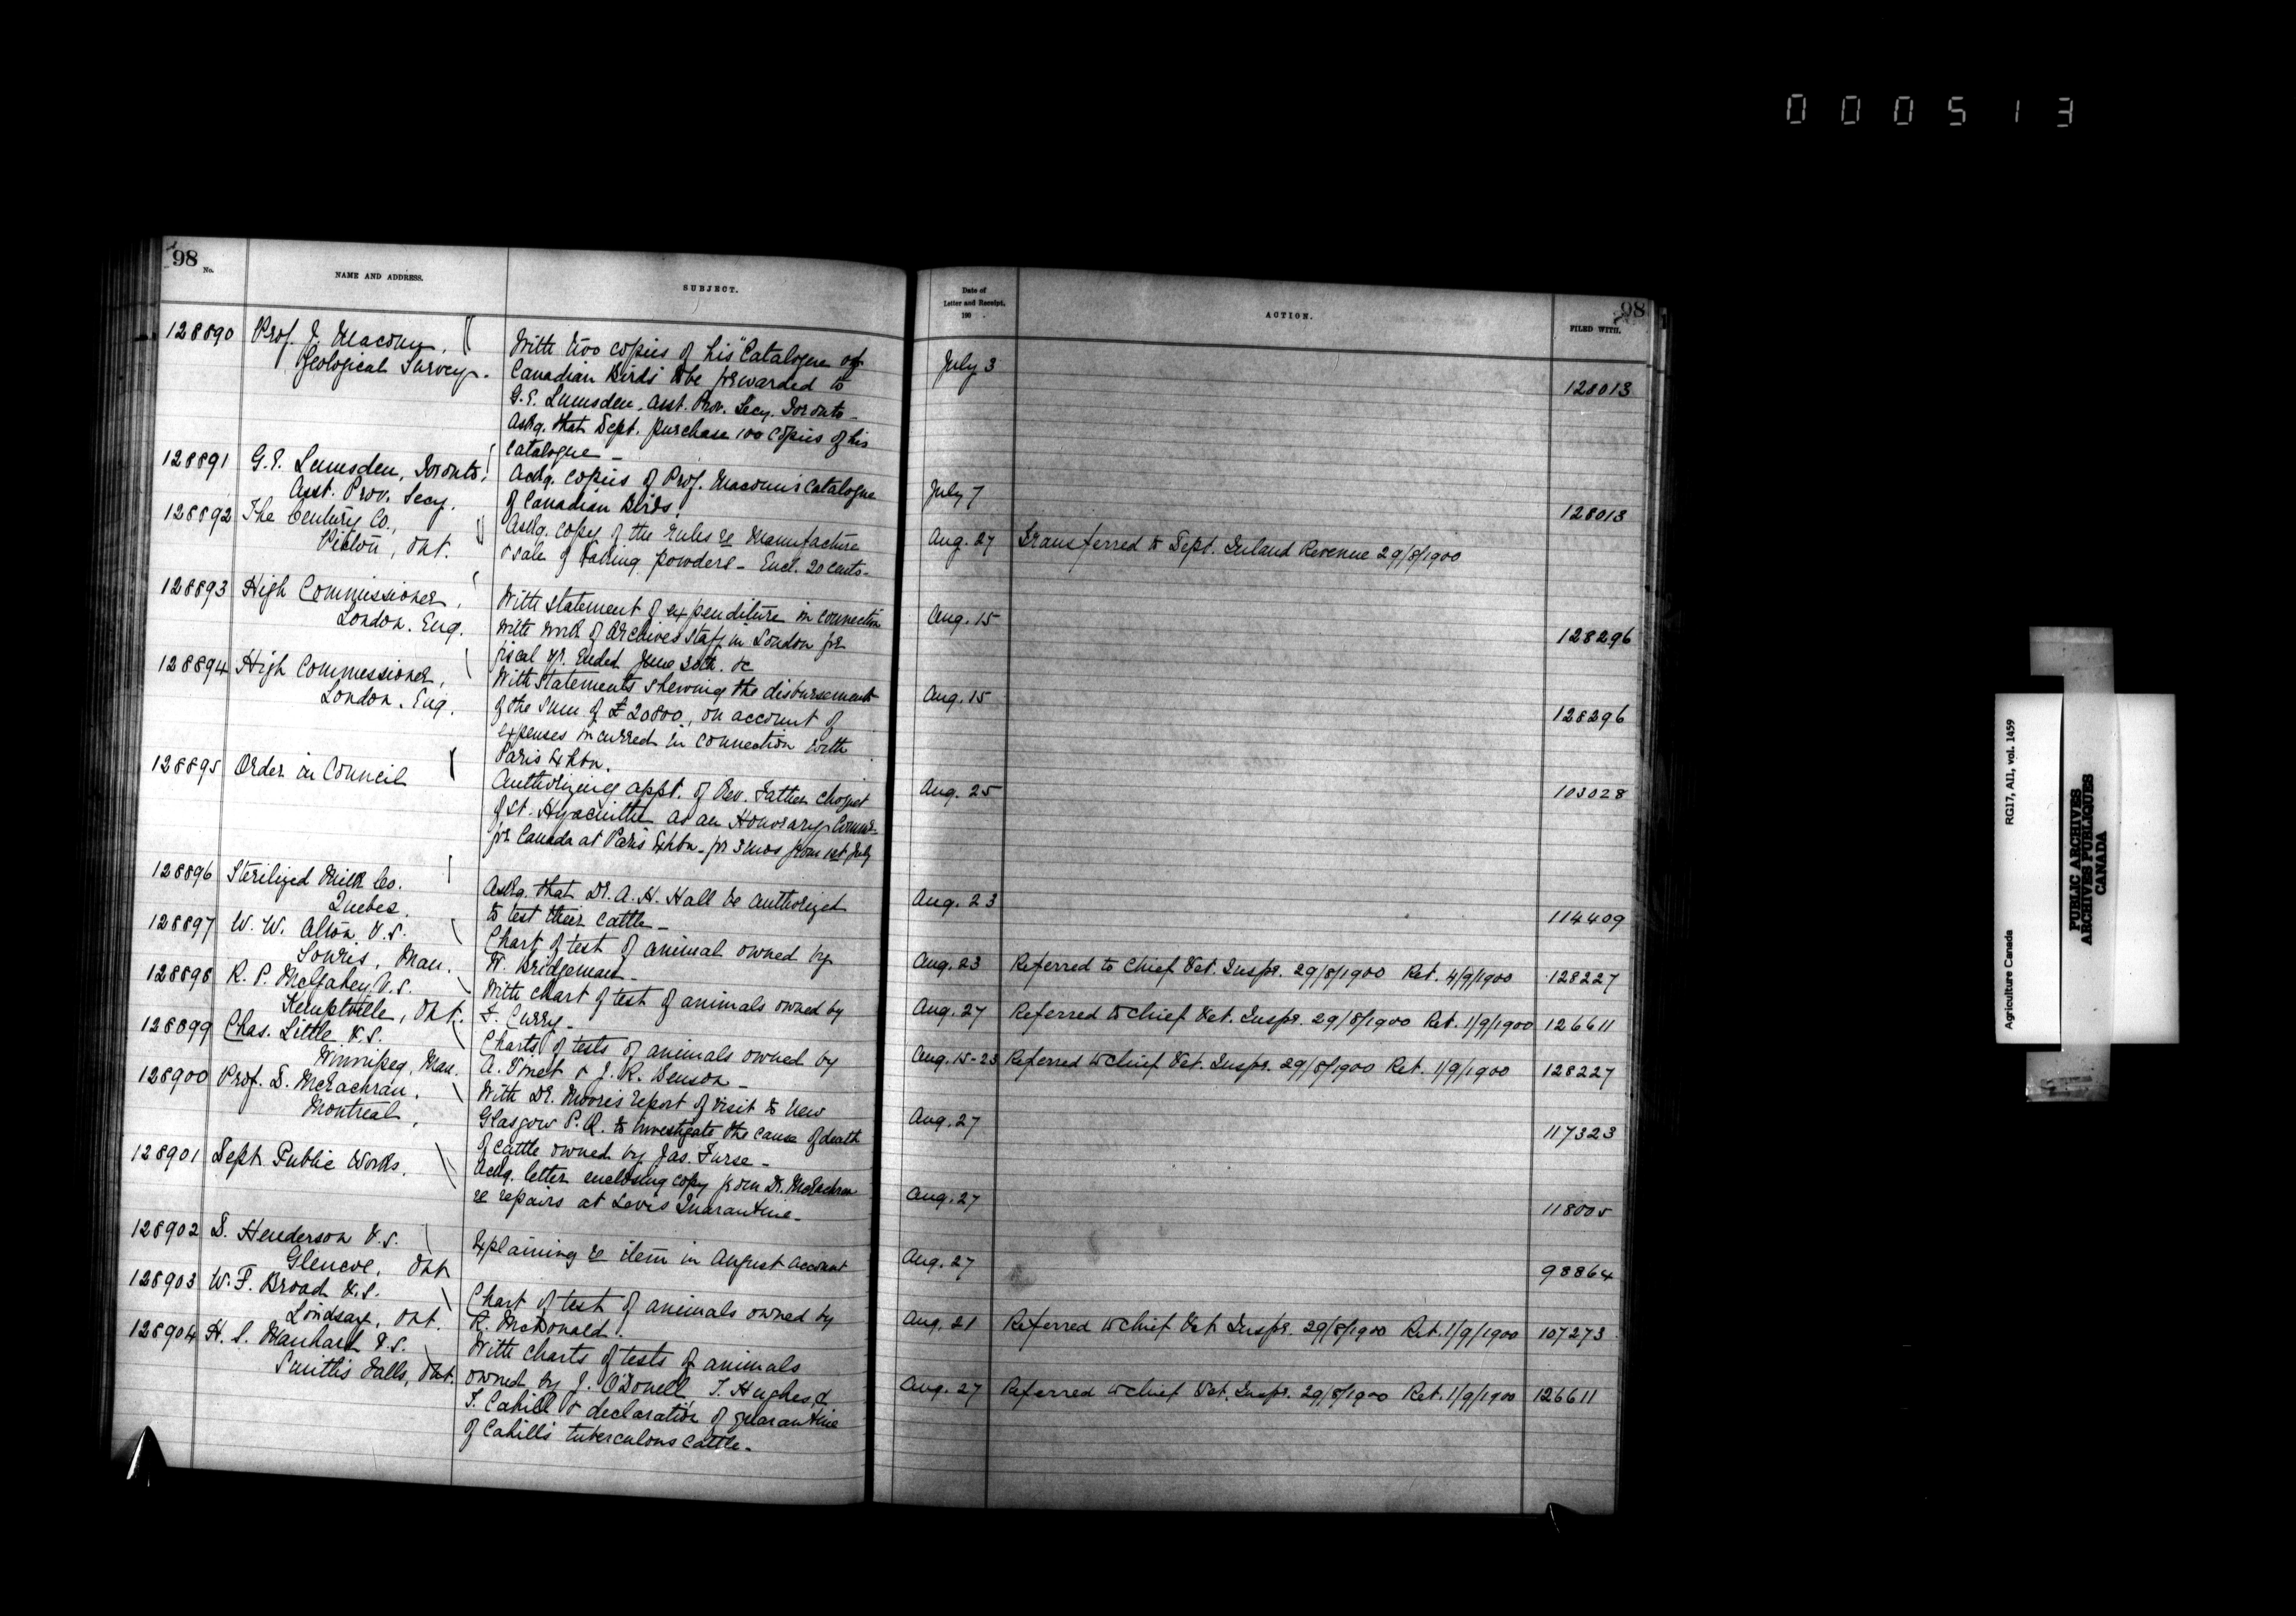 000513
98
No.
NAME AND ADDRESS.
SUBJECT.
128890 Prof. J. Macoun,
Geological Survey.
With two copies of his "Catalogue of
Canadian Birds" to be forwarded to
G.E. Lumsden, Asst. Prov. Secy. Toronto -
Askg. that Dept. purchase 100 copies of his
Catalogue -
128891 G.E. Lumsden, Toronto,
Asst. Prov. Secy.
Ackg. copies of Prof. Macoun's Catalogue
of Canadian Birds.
128892 The Century Co.,
Picton, Ont.
Askg. copy of the rules re Manufacture
& sale of baking powders - Encl. 20 cents -
128893 High Commissioner,
London. Eng.
With statement of expenditure in connection
with work of Archives staff in London for
fiscal yr. ended June 30th. &c
128894 High Commissioner,
London. Eng.
With statements shewing the disbursement
of the sum of £20800, on account of
expenses incurred in connection with
Paris Exhbn.
128895 Order in Council
Authorizing appt. of Rev. Father Choquet
of St. Hyacinthe as an Honorary Commr.
for Canada at Paris Exhbn - for 3 mos from 1st July
128896 Sterilized Milk Co.
Quebec.
Askg. that Dr. A. H. Hall be authorized
to test their cattle -
128897 W. W. Alton V.S.
Souris, Man.
Chart of test of animal owned by
W. Bridgeman -
128898 R. P. McGahey V.S.
Kemptville, Ont.
With chart of test of animals owned by
F. Curry -
128899 Chas. Little V.S.
Winnipeg, Man.
Charts of tests of animals owned by
A. & J. R. Benson -
128900 Prof. D. McEachran.
Montreal,
With Dr. Moores report of visit to New
Glasgow P.Q. to investigate the cause of death
of cattle owned by Jas. Furse -
128901 Dept. Public Works.
Ackg. letter enclosing copy from Dr. McEachran
re repairs at Levis Quarantine -
128902 D. Henderson V.S.
Glencoe, Ont
Explaining re item in August Account
128903 W. F. Broad V.S.
Lindsay, Ont.
Chart of test of animals owned by
R. McDonald.
128904 H. S. Manhard V.S.
Smith's Falls, Ont.
With charts of tests of animals
owned by J. O'Donell, T. Hughes, &
T. Cahill & declaration of quarantine
of Cahill's tuberculous cattle -
Date of
Letter and Receipt,
190 .
ACTION.
98
FILED WITH.
July 3
128013
July 7
128013
Aug. 27 Transferred to Dept. Inland Revenue 29/8/1900
Aug. 15
128296
Aug. 15
128296
Aug. 25
103028
Aug. 23
114409
Aug. 23 Referred to Chief Vet. Inspr. 29/8/1900 Ret. 4/9/1900 128227
Aug. 27 Referred to Chief Vet. Inspr. 29/8/1900 Ret. 1/9/1900 126611
Aug. 15-23 Referred to Chief Vet. Inspr. 29/8/1900 Ret. 1/9/1900 128227
Aug. 27
117323
Aug. 27
118005
Aug. 27
98864
Aug. 21 Referred to Chief Vet. Inspr. 29/8/1900 Ret. 1/9/1900 107273
Aug. 27 Referred to Chief Vet. Inspr. 29/8/1900 Ret. 1/9/1900 126611
Agriculture Canada RG17, AII, vol. 1459
PUBLIC ARCHIVES
ARCHIVES PUBLIQUES
CANADA